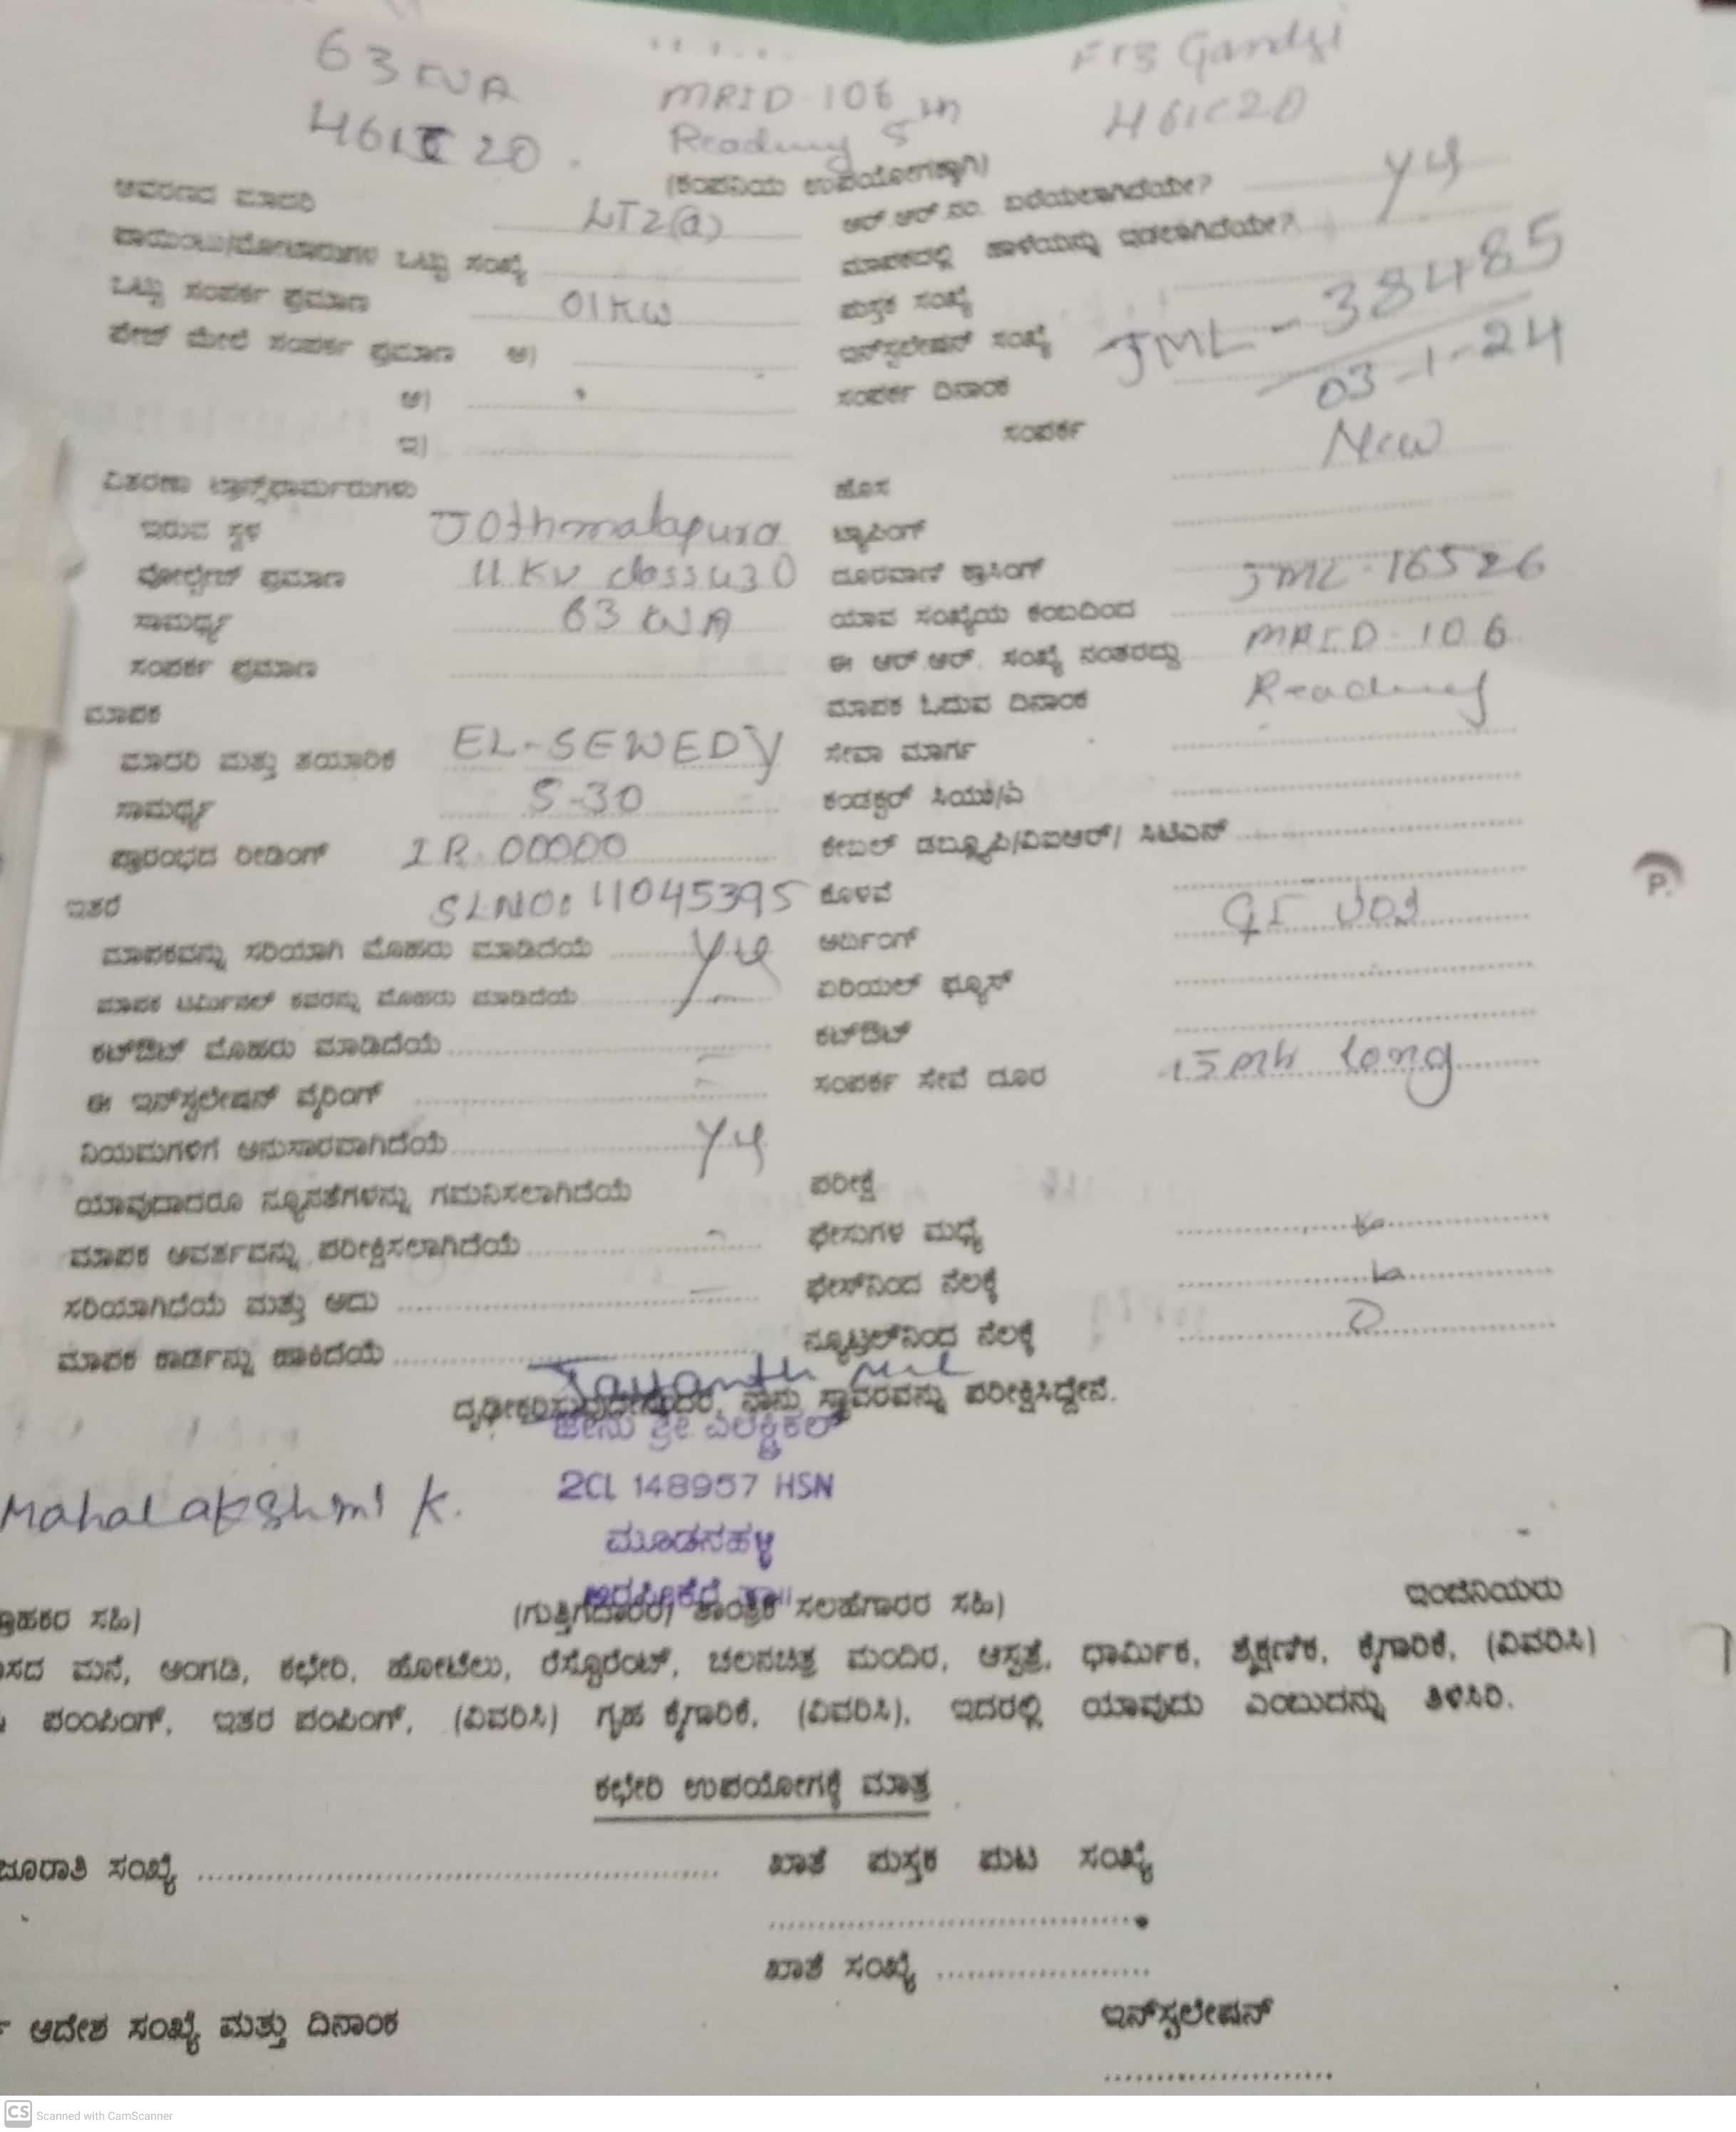 63 KVA
MRID-106
F13 Gandsi
Reading 5th
461C20
(ಕಂಪನಿಯ ಉಪಯೋಗಕ್ಕಾಗಿ)
ಆವರಣದ ಮಾದರಿ LT2(a)
ಆರ್.ಆರ್.ನಂ. ಬರೆಯಲಾಗಿದೆಯೇ?
ಒಟ್ಟು ಸಂಖ್ಯೆ
ಮಾಪಕದಲ್ಲಿ ಹಾಳೆಯನ್ನು ಇಡಲಾಗಿದೆಯೇ?
ಒಟ್ಟು ಸಂಪರ್ಕ ಪ್ರಮಾಣ 01KW
ಪುಸ್ತಕ ಸಂಖ್ಯೆ
ಪೇಜ್ ಮೇಲೆ ಸಂಪರ್ಕ ಪ್ರಮಾಣ ಅ)
ಇನ್‌ಸ್ಟಲೇಷನ್ ಸಂಖ್ಯೆ JML-38485
ಆ)
ಸಂಪರ್ಕ ದಿನಾಂಕ 03-1-24
ಇ)
ಸಂಪರ್ಕ New
ವಿತರಣಾ ಟ್ರಾನ್ಸ್‌ಫಾರ್ಮರುಗಳು
ಹೊಸ
ಇರುವ ಸ್ಥಳ
ಟ್ಯಾಪಿಂಗ್
ವೋಲ್ಟೇಜ್ ಪ್ರಮಾಣ 11KV
ದೂರವಾಣಿ ಕ್ರಾಸಿಂಗ್
ಸಾಮರ್ಥ್ಯ 63 KVA
ಯಾವ ಸಂಖ್ಯೆಯ ಕಂಬದಿಂದ JML-16526
ಸಂಪರ್ಕ ಪ್ರಮಾಣ
ಈ ಆರ್.ಆರ್. ಸಂಖ್ಯೆ ನಂತರದ್ದು MRID-106
ಮಾಪಕ
ಮಾಪಕ ಓದುವ ದಿನಾಂಕ Reading
ಮಾದರಿ ಮತ್ತು ತಯಾರಿಕೆ EL-SEWEDY
ಸೇವಾ ಮಾರ್ಗ
ಸಾಮರ್ಥ್ಯ 5-30
ಕಂಡಕ್ಟರ್ ಸಿಯು/ಎ
ಪ್ರಾರಂಭದ ರೀಡಿಂಗ್ IR. 00000
ಕೇಬಲ್ ಡಬ್ಲ್ಯೂಪಿ/ವಿಐಆರ್/ ಸಿಟಿಎಸ್
ಇತರೆ SLNO: 11045395
ಕೊಳವೆ
ಮಾಪಕವನ್ನು ಸರಿಯಾಗಿ ಮೊಹರು ಮಾಡಿದೆಯೆ
ಅರ್ದಿಂಗ್
ಮಾಪಕ ಟರ್ಮಿನಲ್ ಕವರನ್ನು ಮೊಹರು ಮಾಡಿದೆಯೆ
ಏರಿಯಲ್ ಫ್ಯೂಸ್
ಕಟ್‌ಔಟ್ ಮೊಹರು ಮಾಡಿದೆಯೆ
ಕಟ್‌ಔಟ್
ಈ ಇನ್‌ಸ್ಟಲೇಷನ್ ವೈರಿಂಗ್
ಸಂಪರ್ಕ ಸೇವೆ ದೂರ long
ನಿಯಮಗಳಿಗೆ ಅನುಸಾರವಾಗಿದೆಯೆ
ಯಾವುದಾದರೂ ನ್ಯೂನತೆಗಳನ್ನು ಗಮನಿಸಲಾಗಿದೆಯೆ
ಪರೀಕ್ಷೆ
ಮಾಪಕ ಆವರ್ತವನ್ನು ಪರೀಕ್ಷಿಸಲಾಗಿದೆಯೆ
ಫೇಸುಗಳ ಮಧ್ಯೆ
ಸರಿಯಾಗಿದೆಯೆ ಮತ್ತು ಅದು
ಫೇಸ್‌ನಿಂದ ನೆಲಕ್ಕೆ
ಮಾಪಕ ಕಾರ್ಡನ್ನು ಹಾಕಿದೆಯೆ
ನ್ಯೂಟ್ರಲ್‌ನಿಂದ ನೆಲಕ್ಕೆ
ನಾನು ಸ್ಥಾವರವನ್ನು ಪರೀಕ್ಷಿಸಿದ್ದೇನೆ.
ಶ್ರೀ ಎಲೆಕ್ಟ್ರಿಕಲ್
2CL 148957 HSN
Mahalakshmi K.
ಮೂಡನಹಳ್ಳಿ
ಅರಸೀಕೆರೆ ತಾ॥
ಸಹಿ)
(ಗುತ್ತಿಗೆದಾರರ) ತಾಂತ್ರಿಕ ಸಲಹೆಗಾರರ ಸಹಿ)
ಇಂಜಿನಿಯರು
ಮನೆ, ಅಂಗಡಿ, ಕಛೇರಿ, ಹೋಟೆಲು, ರೆಸ್ಟೊರೆಂಟ್, ಚಲನಚಿತ್ರ ಮಂದಿರ, ಆಸ್ಪತ್ರೆ, ಧಾರ್ಮಿಕ, ಶೈಕ್ಷಣಿಕ, ಕೈಗಾರಿಕೆ, (ವಿವರಿಸಿ)
ಪಂಪಿಂಗ್, ಇತರ ಪಂಪಿಂಗ್, (ವಿವರಿಸಿ) ಗೃಹ ಕೈಗಾರಿಕೆ, (ವಿವರಿಸಿ), ಇದರಲ್ಲಿ ಯಾವುದು ಎಂಬುದನ್ನು ತಿಳಿಸಿರಿ.
ಕಛೇರಿ ಉಪಯೋಗಕ್ಕೆ ಮಾತ್ರ
ಸಂಖ್ಯೆ
ಖಾತೆ ಪುಸ್ತಕ ಪುಟ ಸಂಖ್ಯೆ
ಖಾತೆ ಸಂಖ್ಯೆ
ಆದೇಶ ಸಂಖ್ಯೆ ಮತ್ತು ದಿನಾಂಕ
ಇನ್‌ಸ್ಟಲೇಷನ್
CS Scanned with CamScanner